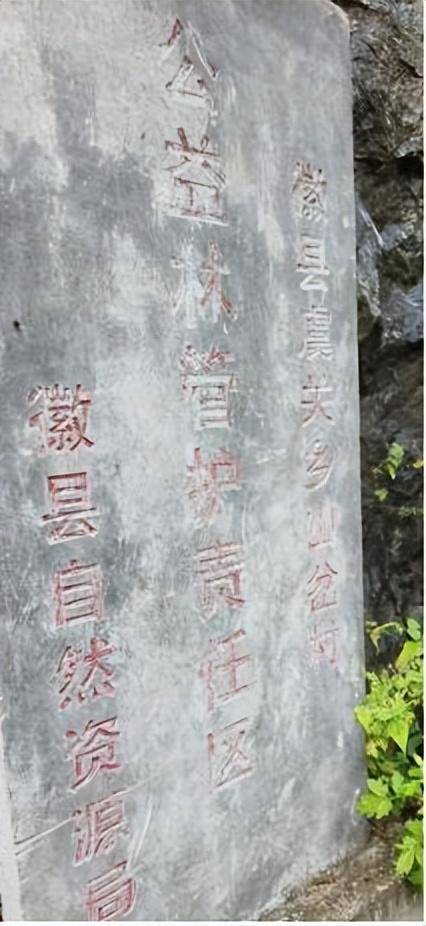 徽县虞关乡山岔村
公益林管护责任区
徽县自然资源局